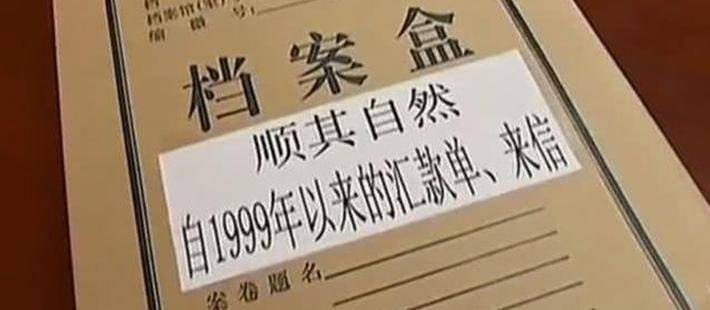 档案馆(室)
编微号:
档案盒
顺其自然
自1999年以来的汇款单、来信
案卷题名